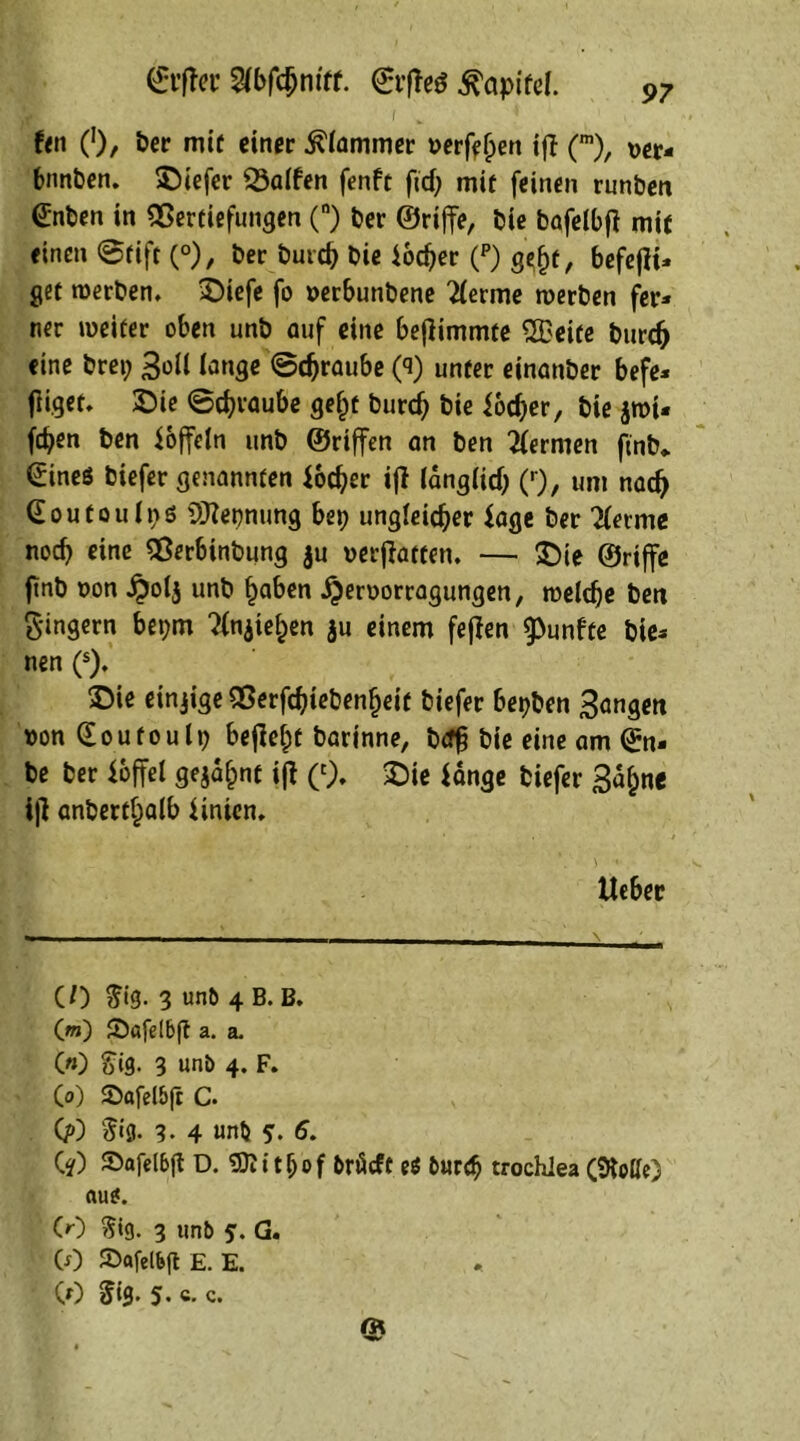 Erster Abschnitt. Erstes Kapitel. 97
ken (l), der mit einer Klammer versehen ist (m), ver-
bunden. Dieser Balken senkt sich mit seinen runden
Enden in Vertiefungen (n) der Griffe, die daselbst mit
einen Stift (o), der durch die Löcher (p) geht, befesti-
get werden. Diese so verbundene Aerme werden fer-
ner weiter oben und auf eine bestimmte Weite durch
eine drey Zoll lange Schraube (q) unter einander befe-
stiget. Die Schraube geht durch die Löcher, die zwi-
schen den Löffeln und Griffen an den Aermen sind.
Eines dieser genannten Löcher ist länglich (r), um nach
Coutoulys Meynung bey ungleicher Lage der Aerme
noch eine Verbindung zu verstatten. — Die Griffe
sind von Holz und haben Hervorragungen, welche den
Fingern beym Anziehen zu einem festen Punkte die-
nen (s).
Die einzige Verschiedenheit dieser beyden Zangen
von Coutouly besteht darinne, daß die eine am En-
de der Löffel gezähnt ist (t). Die Länge dieser Zähne
ist anderthalb Linien.
Ueber
(l) Fig. 3 und 4 B. B.
(m) Daselbst a. a.
(n) Fig. 3 und 4. F.
(o) Daselbst C.
(p) Fig. 3. 4 und 5. 6.
(q) Daselbst D. Mithof drückt es durch trochlea (Rolle)
aus.
(r) Fig. 3 und 5. G.
(s) Daselbst E. E.
(t) Fig. 5. c. c.
G